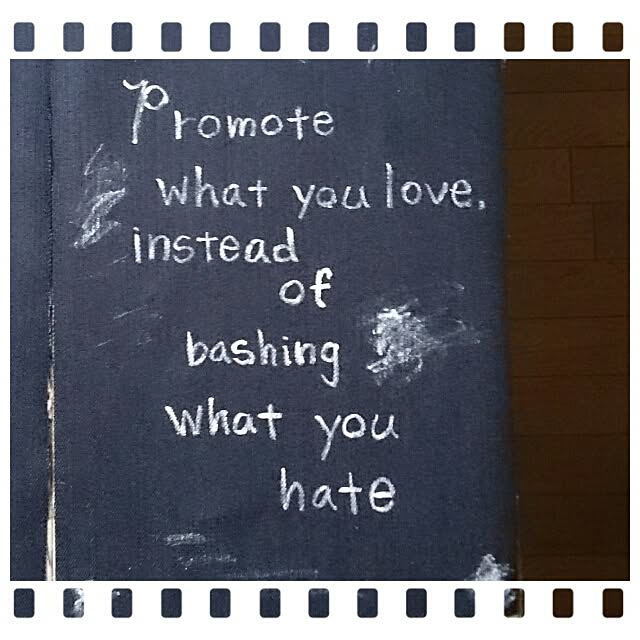 Promote
what you love,
instead
of
bashing
what you
hate